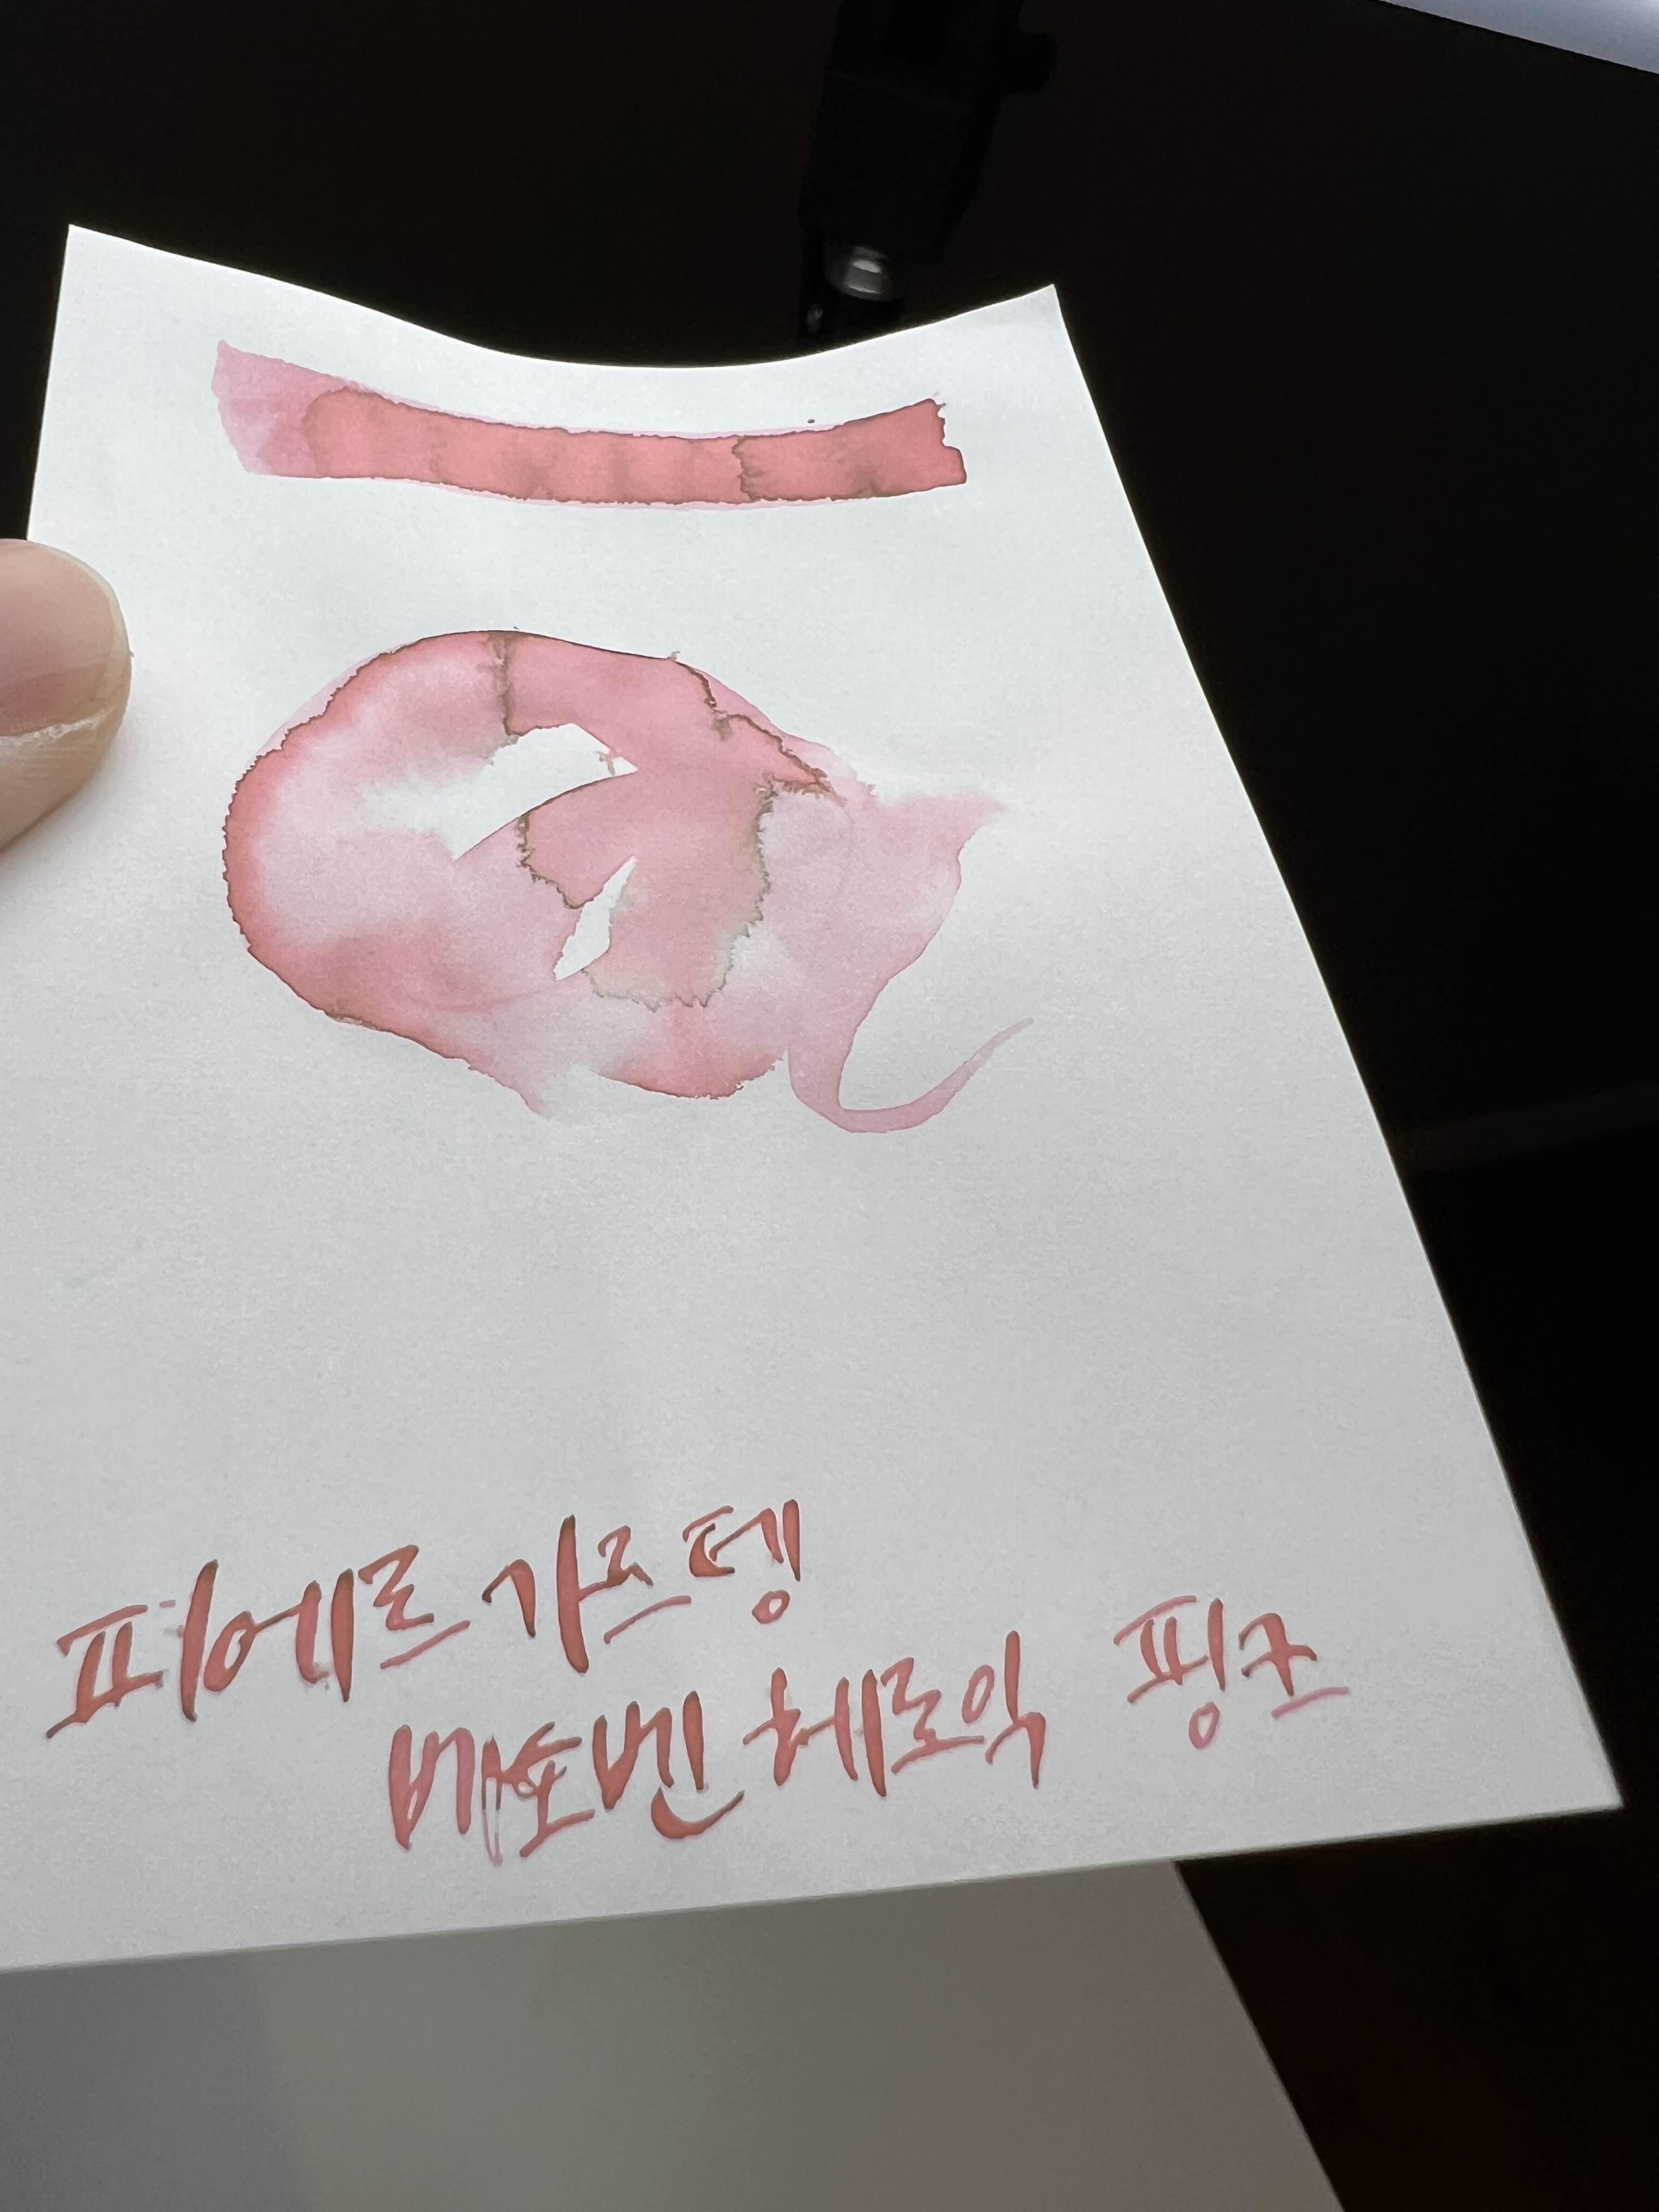 피에르 가르뎅
베토벤 헤로익 핑크